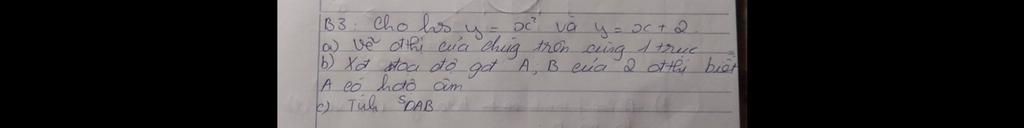 B3: Cho hso y = x² và y = x + 2.
a) Vẽ đthị của chúg trên cùng 1 trục
b) Xđ toạ độ gđ A, B của 2 đthị biết
A có hđộ âm
c) Tính S OAB